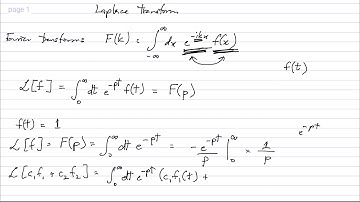 page 1
Laplace Transform
Fourier transform: F(k) = ∫_{-∞}^{∞} dx e^{-ikx} f(x)
f(t)
L[f] = ∫_0^∞ dt e^{-pt} f(t) = F(p)
f(t) = 1
e^{-pt}
L[f] = F(p) = ∫_0^∞ dt e^{-pt} = - e^{-pt}/p |_0^∞ = 1/p
L[c_1 f_1 + c_2 f_2] = ∫_0^∞ dt e^{-pt} (c_1 f_1(t) +